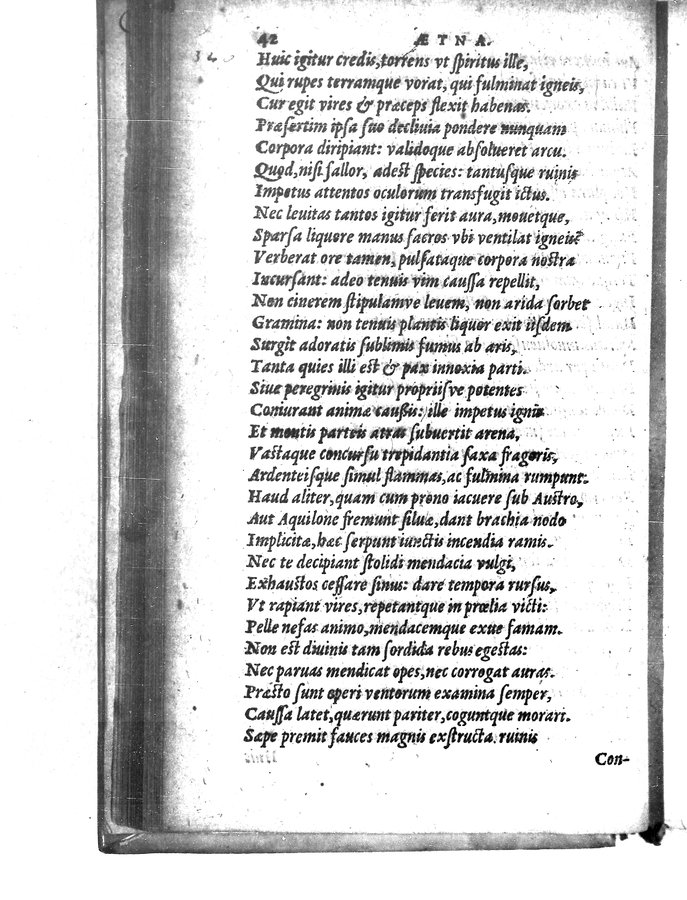 42 ÆTNA.
340
Huic igitur credis, torrens vt ſpiritus ille,
Qui rupes terramque vorat, qui fulminat igneis,
Cur egit vires & præceps flexit habenas.
Præſertim ipſa ſuo decliuia pondere nunquam
Corpora diripiant: validoque abſolueret arcu.
Quod, niſi fallor, adeſt ſpecies: tantuſque ruinis
Impetus attentos oculorum transfugit ictus.
Nec leuitas tantos igitur ferit aura, mouetque,
Sparſa liquore manus ſacros vbi ventilat igneis
Verberat ore tamen, pulſataque corpora noſtra
Incurſant: adeo tenuis vim cauſſa repellit,
Non cinerem ſtipulamve leuem, non arida ſorbet
Gramina: non tenuis plantis liquor exit iiſdem
Surgit adoratis ſublimis fumus ab aris,
Tanta quies illi eſt & pax innoxia parti.
Siue peregrinis igitur propriiſve potentes
Coniurant animæ cauſſis: ille impetus ignis
Et montis parteis atras ſubuertit arena,
Vaſtaque concurſu trepidantia ſaxa fragoris,
Ardenteiſque ſimul flammas, ac fulmina rumpunt.
Haud aliter, quam cum prono iacuere ſub Auſtro,
Aut Aquilone fremunt ſiluæ, dant brachia nodo
Implicitæ, hæc ſerpunt iunctis incendia ramis.
Nec te decipiant ſtolidi mendacia vulgi,
Exhauſtos ceſſare ſinus: dare tempora rurſus,
Vt rapiant vires, repetantque in prœlia victi:
Pelle nefas animo, mendacemque exue famam.
Non eſt diuinis tam ſordida rebus egeſtas:
Nec paruas mendicat opes, nec corrogat auras.
Præſto ſunt operi ventorum examina ſemper,
Cauſſa latet, quærunt pariter, coguntque morari.
Sæpe premit fauces magnis exſtructa ruinis
Con-